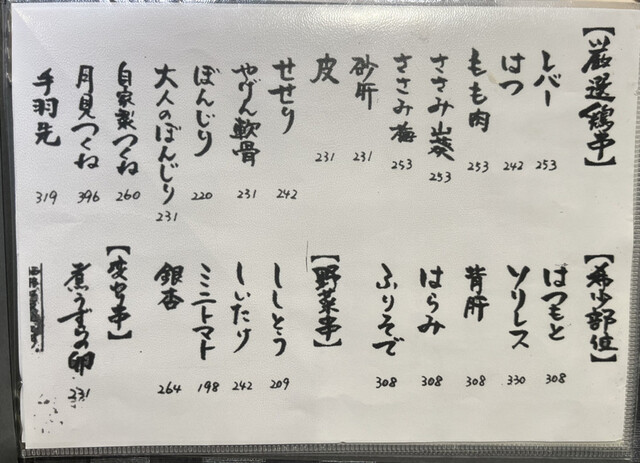 【厳選鶏串】
レバー 253
はつ 242
もも肉 253
ささみ山葵 253
ささみ梅 253
砂肝 231
皮 231
せせり 242
やげん軟骨 231
ぼんじり 220
大人のぼんじり 231
自家製つくね 260
月見つくね 396
手羽先 319
【希少部位】
はつもと 308
ソリレス 330
背肝 308
はらみ 308
ふりそで 308
【野菜串】
ししとう 209
しいたけ 242
ミニトマト 198
銀杏 264
【変わり串】
煮うずらの卵 231